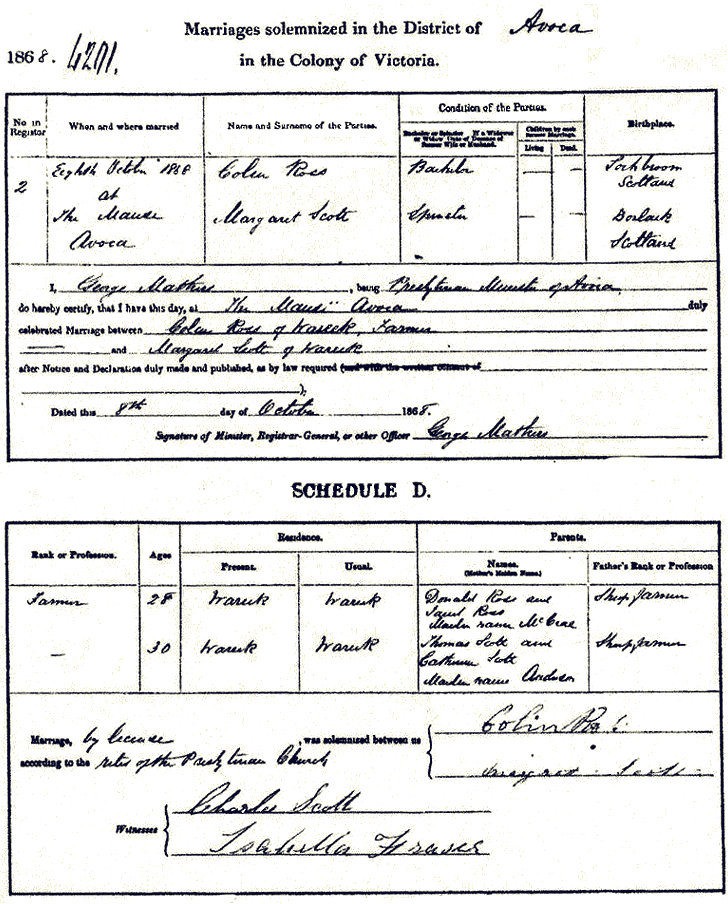 Marriages solemnized in the District of Avoca
1868. 4201.
in the Colony of Victoria.
No in Register
When and where married
Name and Surname of the Parties.
Condition of the Parties.
Bachelor or Spinster. If a Widower or Widow, Date of Decease of former Wife or Husband.
Children by each former Marriage.
Living
Dead.
Birthplace.
2
Eighth October 1868
at
The Manse
Avoca
Colin Ross
Bachelor
— —
Lochbroom
Scotland
Margaret Scott
Spinster
— —
Scotland
I, George Mathers, being Presbyterian Minister of Avoca,
do hereby certify, that I have this day, at The Manse Avoca duly
celebrated Marriage between Colin Ross of Wareek, Farmer
— and Margaret Scott of Wareek
after Notice and Declaration duly made and published, as by law required (and with the written consent of
);
Dated this 8th day of October 1868.
Signature of Minister, Registrar-General, or other Officer George Mathers
SCHEDULE D.
Rank or Profession.
Ages
Residence.
Present.
Usual.
Parents.
Names.
(Mother's Maiden Name.)
Father's Rank or Profession
Farmer
28
Wareek
Wareek
Donald Ross and
Janet Ross
Maiden name McCrae
Sheep farmer
—
30
Wareek
Wareek
Thomas Scott and
Catherine Scott
Maiden name Anderson
Sheep farmer
Marriage, by license, was solemnized between us
according to the rites of the Presbyterian Church
Colin Ross
Margret Scott
Witnesses
Charles Scott
Isabella Fraser